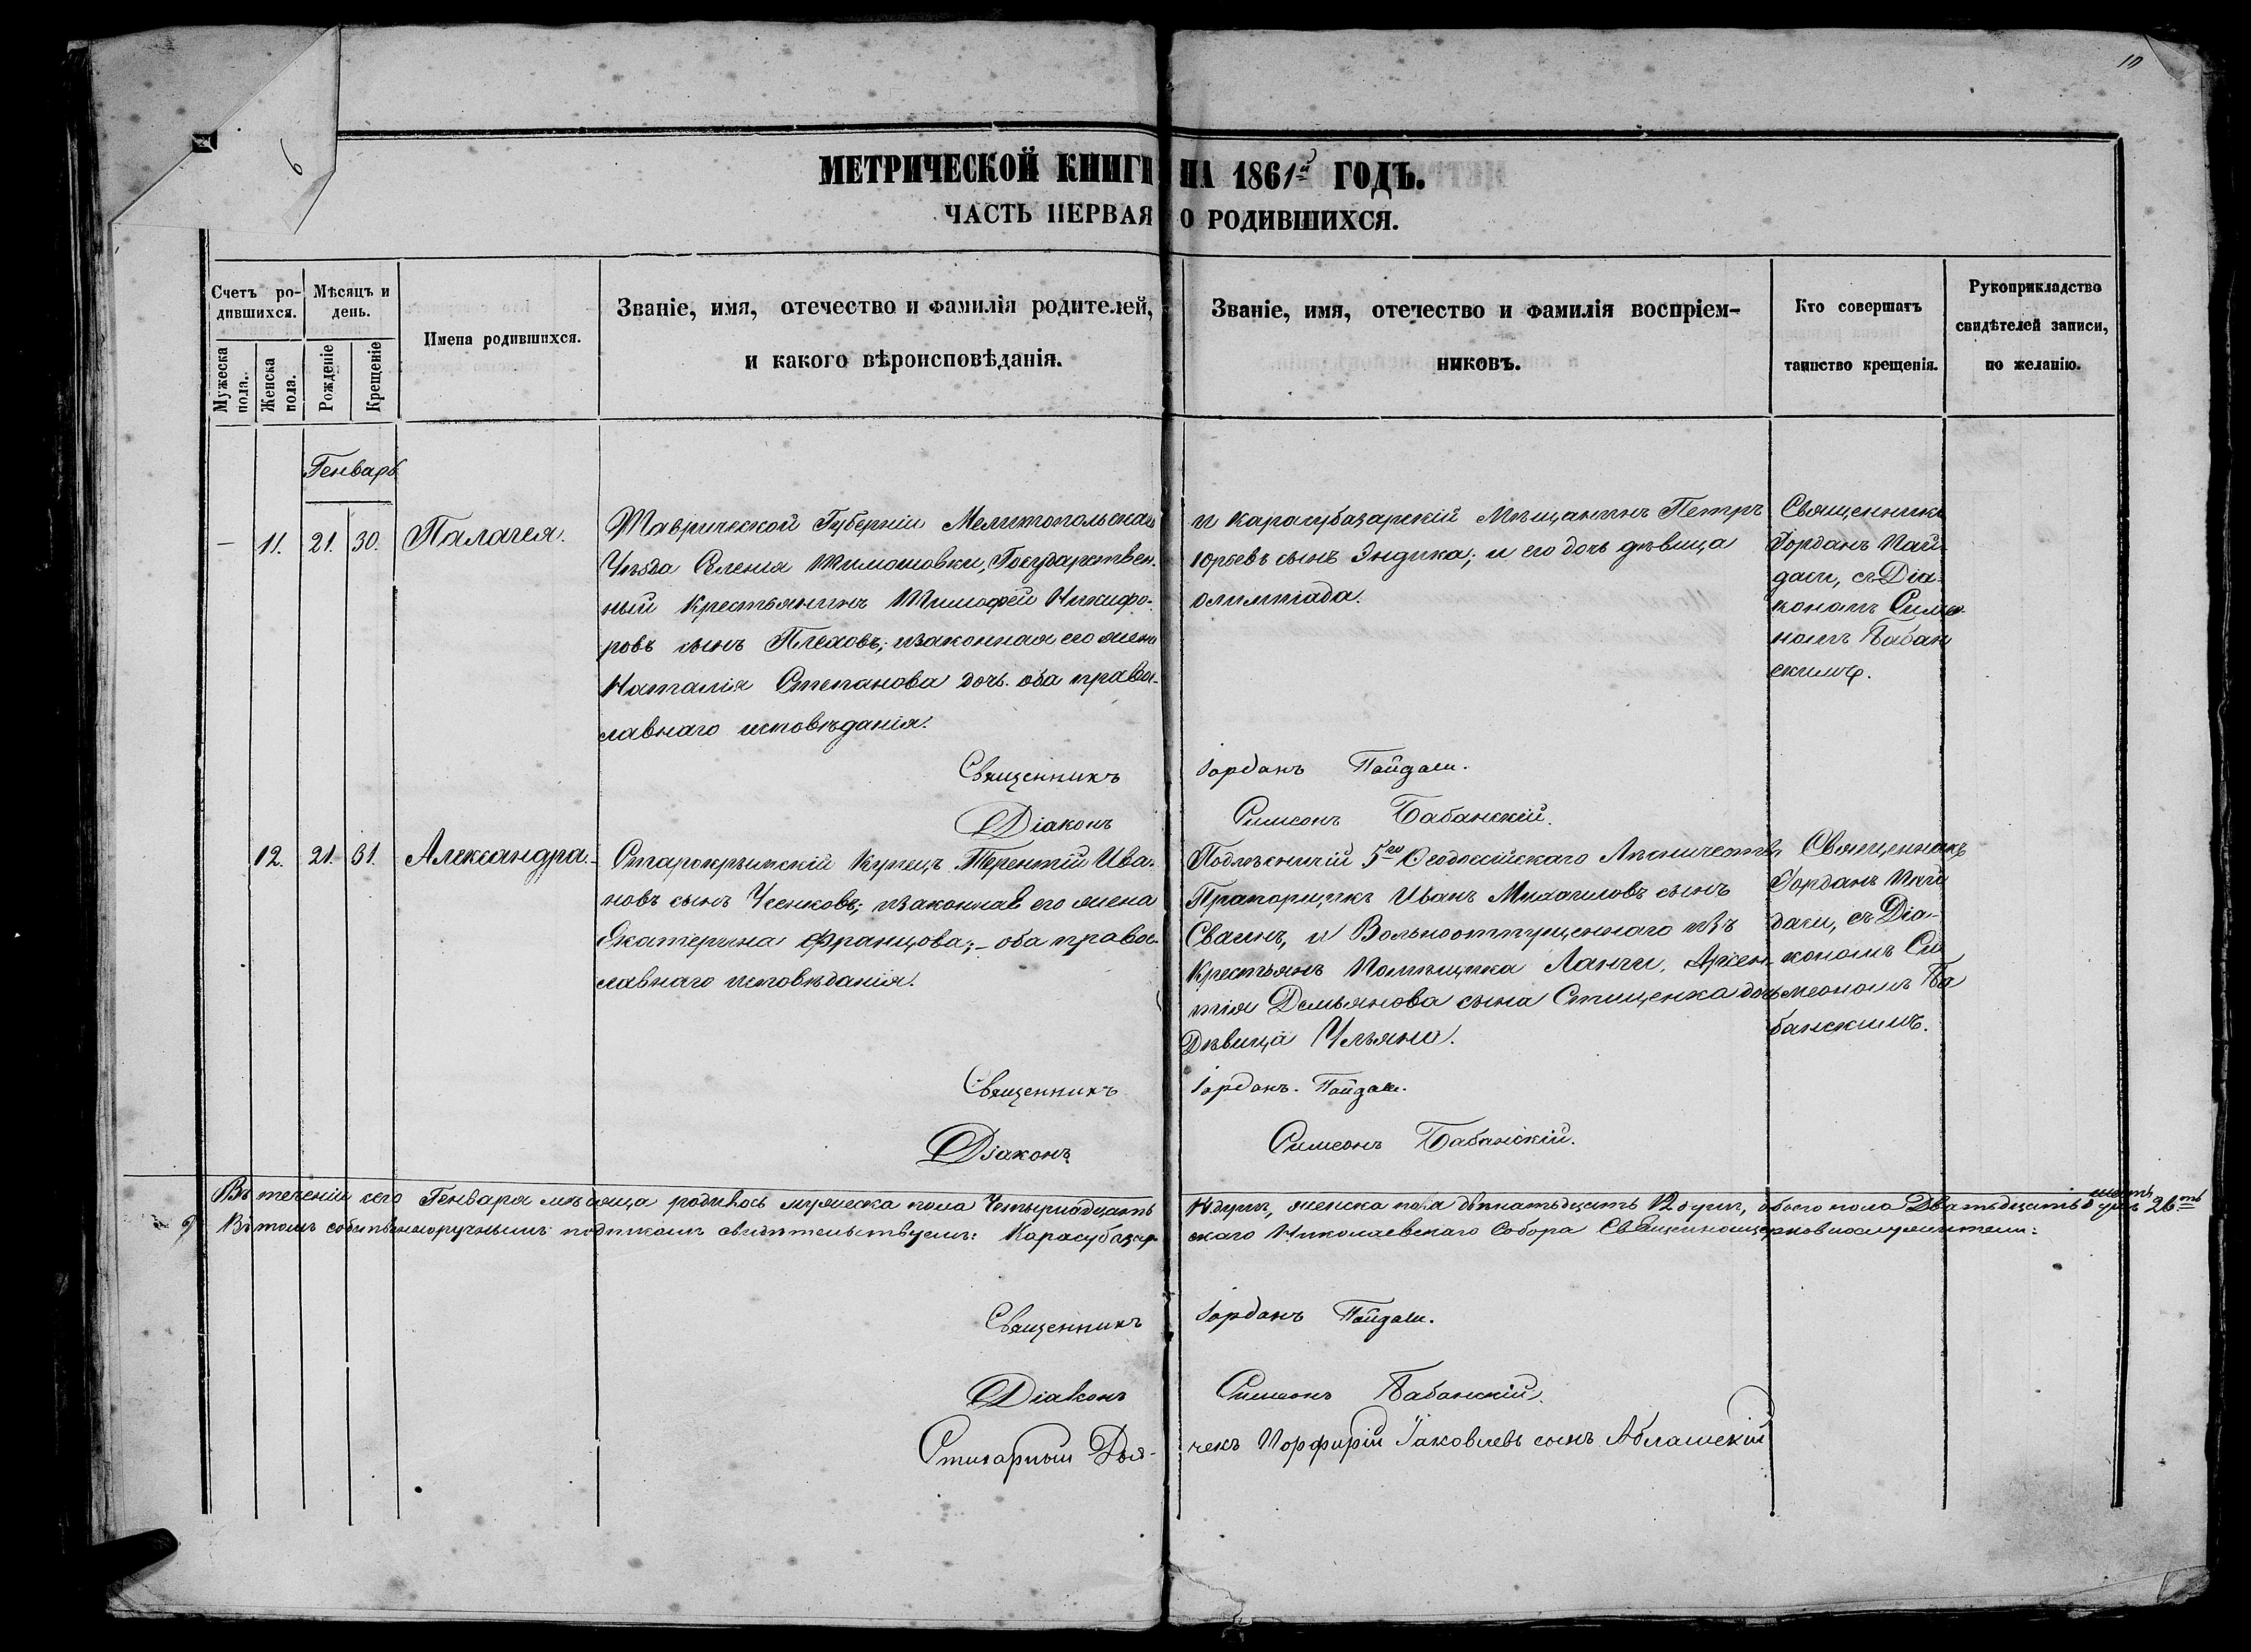 10
6
МЕТРИЧЕСКОЙ КНИГИ НА 1861й ГОДЪ.
ЧАСТЬ ПЕРВАЯ О РОДИВШИХСЯ.
Счетъ ро-
дившихся.
Мужеска пола.
Женска пола.
Мѣсяцъ и
день.
Рожденіе
Крещеніе
Имена родившихся.
Званіе, имя, отечество и фамилія родителей,
и какого вѣроисповѣданія.
Званіе, имя, отечество и фамилія воспріем-
никовъ.
Кто совершатъ
таинство крещенія.
Рукоприкладство
свидѣтелей записи,
по желанію.
Генварь
– 11. 21. 30. Палагея.
Таврической Губерніи Мелитопольскаго
Уѣзда Селенія Тимошовки, Государствен-
ный Крестьянинъ Тимофей Никифо-
ровъ сынъ Плеховъ; изаконная его жена
Наталія Степанова дочь. оба право-
славнаго исповѣданія.
и Карасубазарскій Мѣщанинъ Петръ
Юрьевъ сынъ Эндика; и его дочь дѣвица
Олимпіада.
Священникъ
Іорданъ Пай-
даси, съ Діа-
кономъ Симео-
номъ Бабан
скимъ.
Священникъ Іорданъ Пайдаси.
Діаконъ Симеонъ Бабанскій.
12. 21. 31. Александра.
Старокрымскій Купецъ Терентій Ива-
новъ сынъ Чеснковъ; изаконная его жена
Екатерина Францова; – оба право-
славнаго исповѣданія.
Подлѣсничій 5го Ѳеодосійскаго Лѣсничества
Прапорщикъ Иванъ Михаиловъ сынъ
Сваинъ, и Вольноотпущеннаго изъ
Крестьянъ Помѣщика Ланги, Арсен-
тія Демьянова сына Стищенка дочь
Дѣвица Ульяна.
Священникъ
Іорданъ Пай
даси, съ Діа-
кономъ Си
меономъ Ба
банскимъ.
Священникъ Іорданъ Пайдаси.
Діаконъ Симеонъ Бабанскій.
Въ теченіи сего Генваря мѣсяца родилось мужеска пола Четырнадцать 14 душъ, женска пола двѣнатьдцать 12 душъ, обоего пола Дватьдцать шесть душъ 26ть
Въ томъ собственноручнымъ подпискомъ свидѣтельствуемъ: Карасубазар скаго Николаевскаго Собора Священноцерковнослужители:
Священникъ Іорданъ Пайдаси.
Діаконъ Симеонъ Бабанскій.
Стихарный Дья- чекъ Порфирій Іаковлевъ сынъ Аблашскій